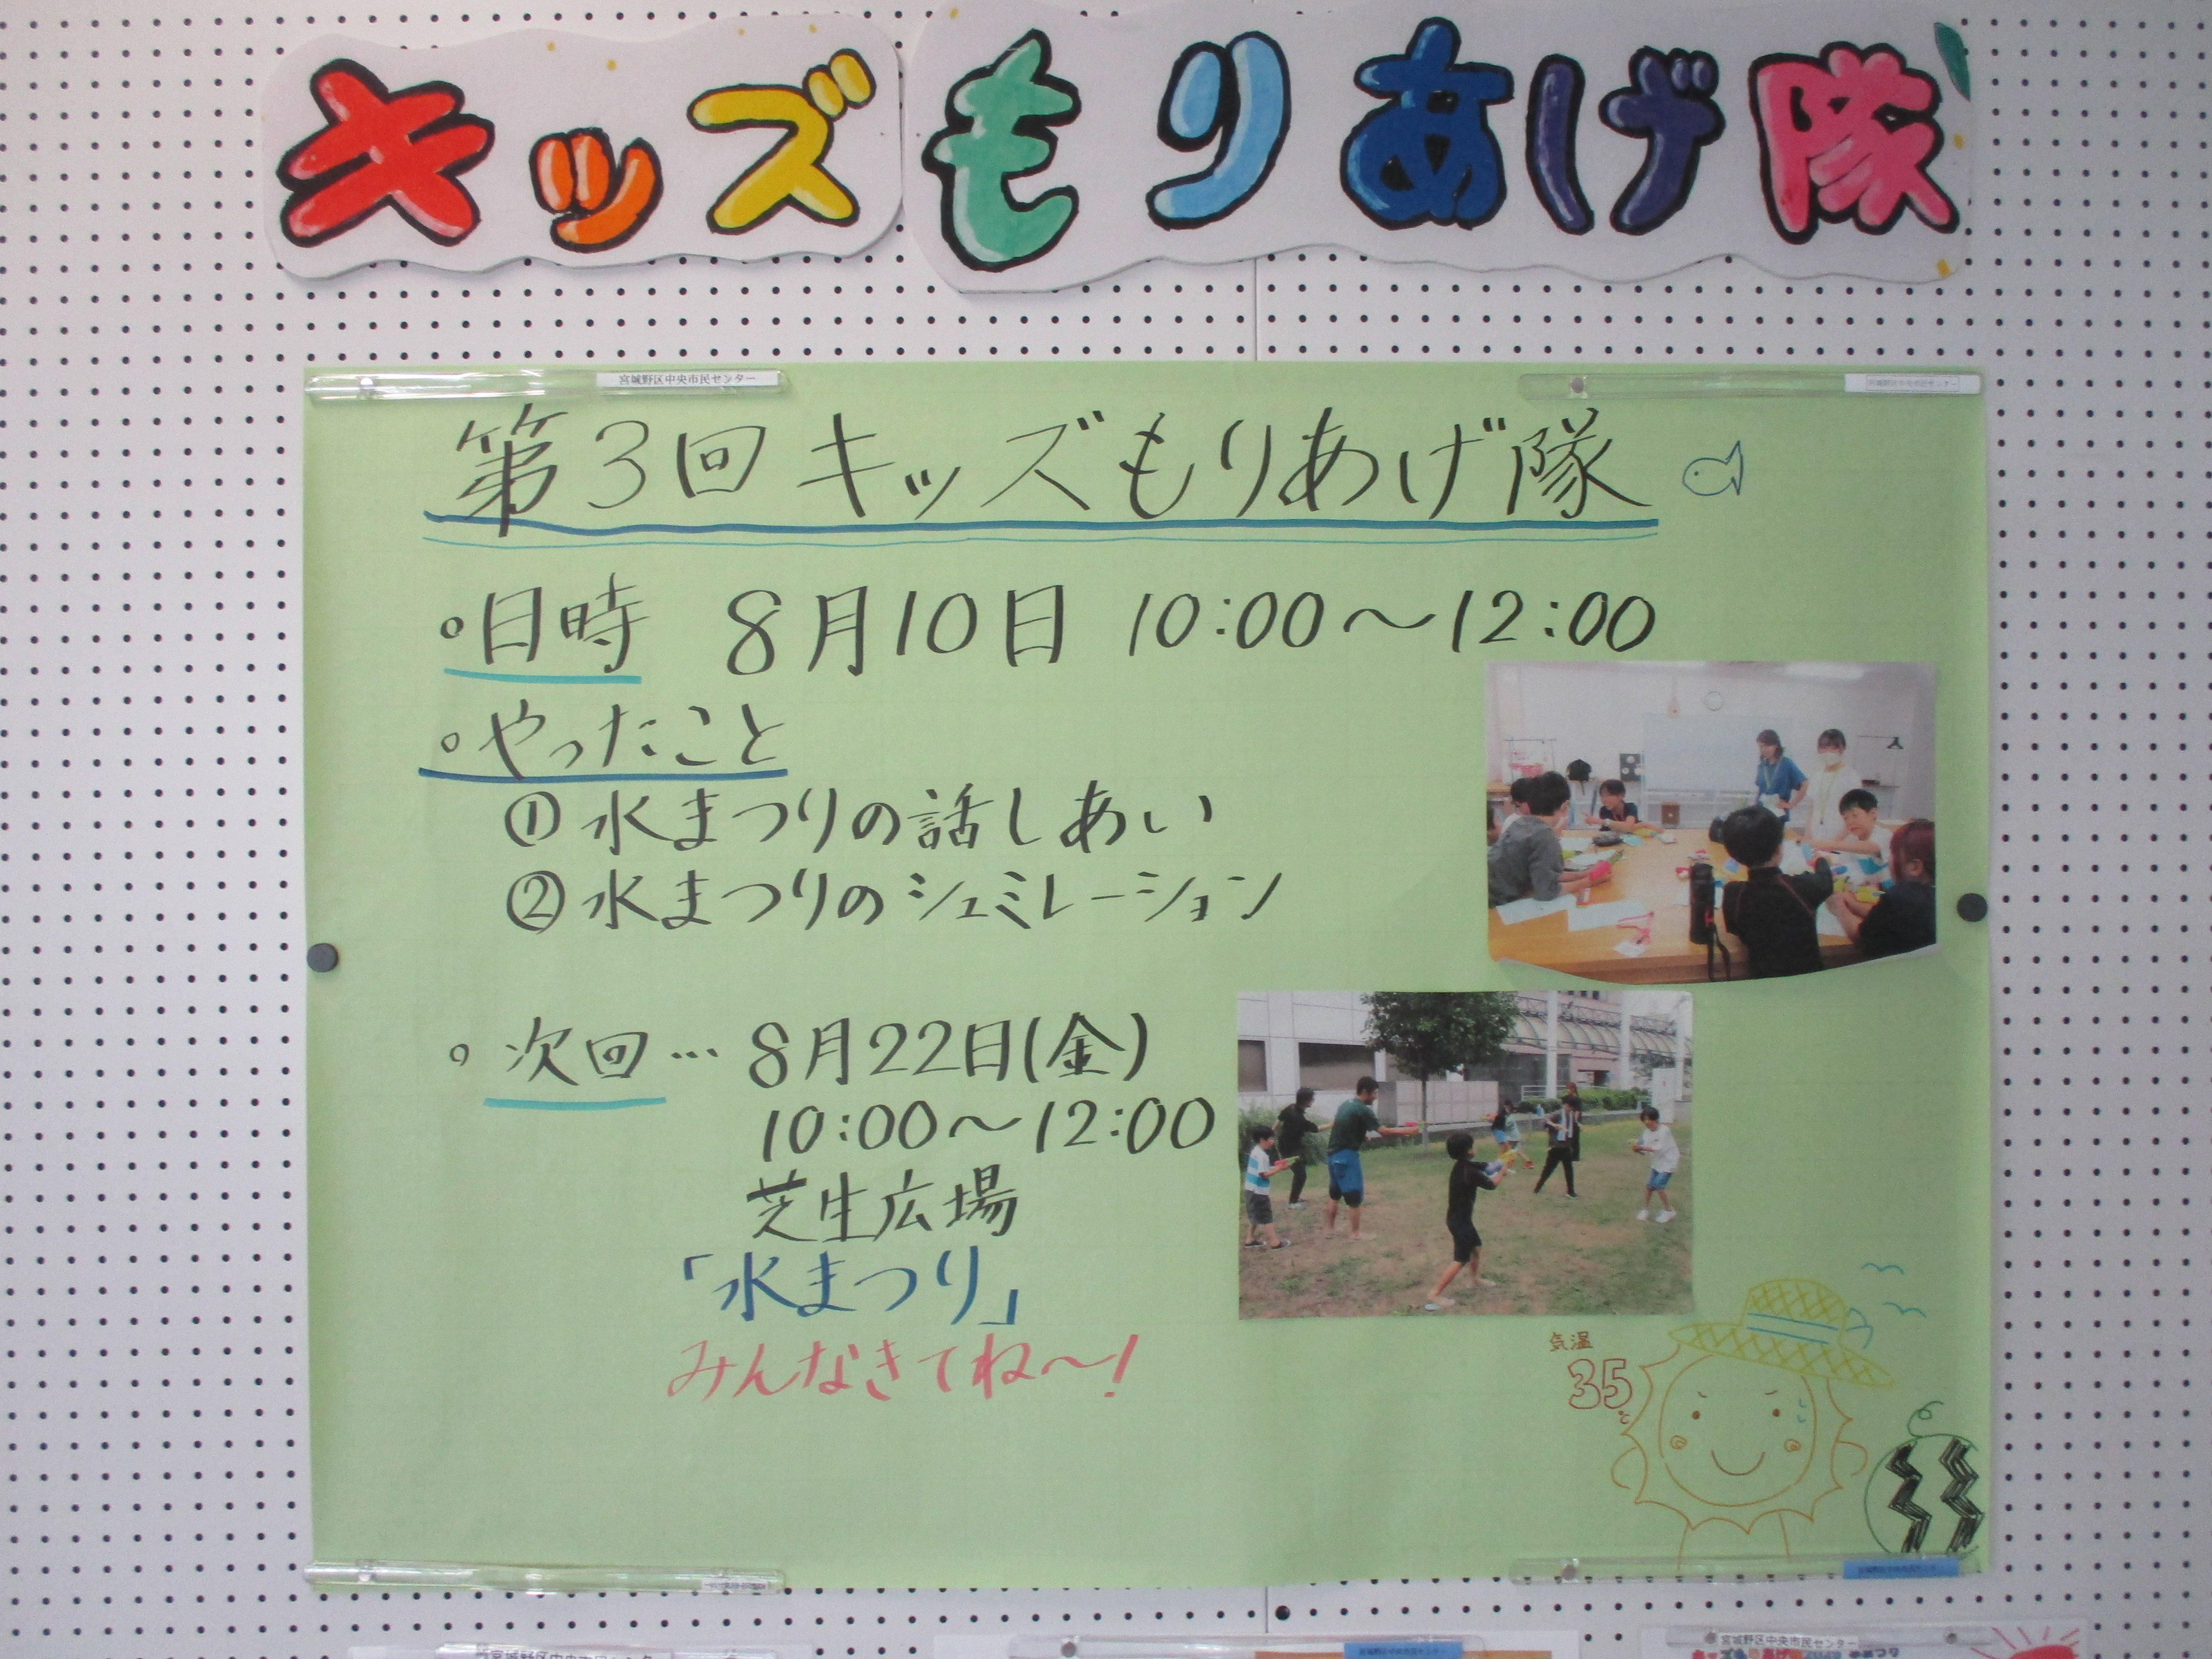 キッズもりあげ隊
宮城野区中央市民センター
宮城野区中央市民センター
第3回キッズもりあげ隊
○日時 8月10日 10:00〜12:00
○やったこと
①水まつりの話しあい
②水まつりのシュミレーション
○次回…8月22日(金)
10:00〜12:00
芝生広場
「水まつり」
みんなきてね〜!
気温
35℃
宮城野区中央市民センター
宮城野区中央市民センター